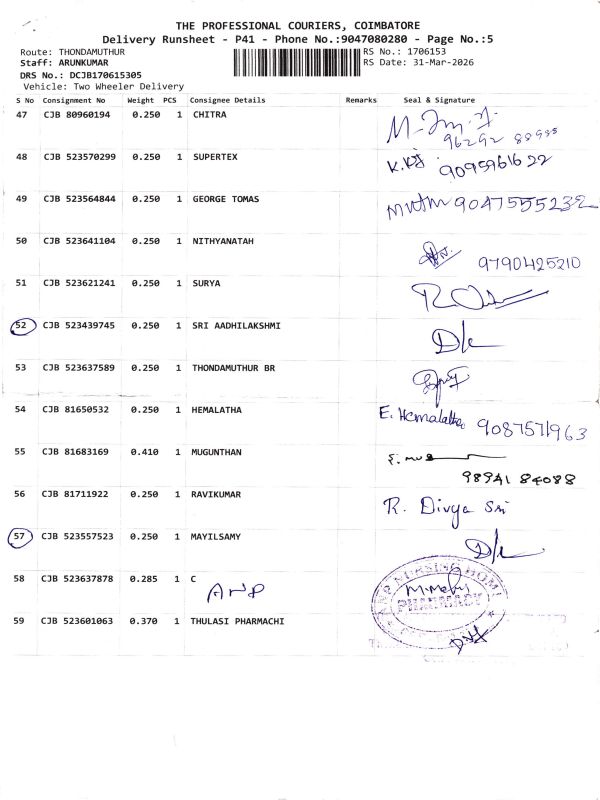 THE PROFESSIONAL COURIERS, COIMBATORE
Delivery Runsheet - P41 - Phone No.:9047080280 - Page No.:5
Route: THONDAMUTHUR RS No.: 1706153
Staff: ARUNKUMAR RS Date: 31-Mar-2026
DRS No.: DCJB170615305
Vehicle: Two Wheeler Delivery
S No Consignment No Weight PCS Consignee Details Remarks Seal & Signature
47 CJB 80960194 0.250 1 CHITRA
96292 88985
48 CJB 523570299 0.250 1 SUPERTEX
9095961622
49 CJB 523564844 0.250 1 GEORGE TOMAS 9047555232
50 CJB 523641104 0.250 1 NITHYANATAH
9790425210
51 CJB 523621241 0.250 1 SURYA
52 CJB 523439745 0.250 1 SRI AADHILAKSHMI D/c
53 CJB 523637589 0.250 1 THONDAMUTHUR BR
54 CJB 81650532 0.250 1 HEMALATHA E. Hemalatha 9087571963
55 CJB 81683169 0.410 1 MUGUNTHAN
98941 84088
56 CJB 81711922 0.250 1 RAVIKUMAR R. Divya Sri
57 CJB 523557523 0.250 1 MAYILSAMY D/c
58 CJB 523637878 0.285 1 C
ANP
NURSING HOME
PHARMACY
59 CJB 523601063 0.370 1 THULASI PHARMACHI